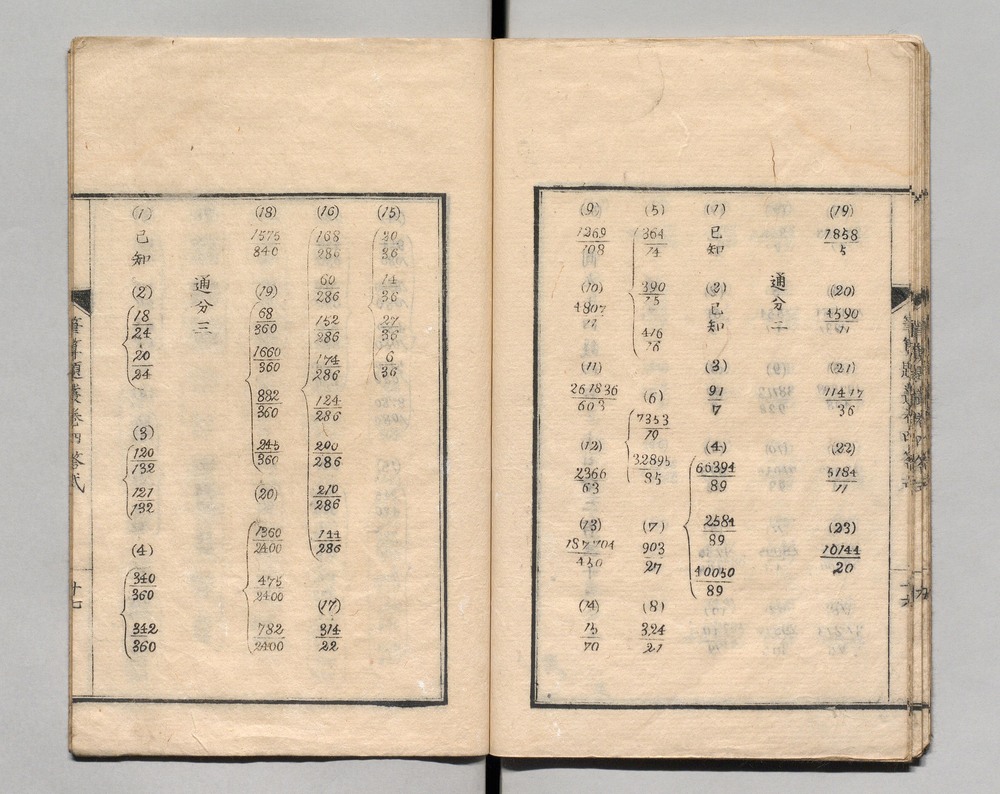 (19)
1858
5
(20)
4590
11
(21)
11417
36
(22)
5184
11
(23)
10144
20
通分二
(1)
已知
(2)
已知
(3)
91
7
(4)
66394
89
2584
89
40050
89
(5)
364
14
390
15
416
16
(6)
7353
19
32895
85
(7)
903
27
(8)
324
21
(9)
1269
108
(10)
4807
11
(11)
261836
603
(12)
2366
63
(13)
187704
450
(14)
15
70
(15)
20
36
14
36
27
36
6
36
(16)
168
286
60
286
152
286
174
286
124
286
200
286
210
286
144
286
(17)
314
22
(18)
1575
840
(19)
68
360
1660
360
882
360
245
360
(20)
1360
2400
475
2400
782
2400
通分三
(1)
已知
(2)
18
24
20
24
(3)
120
132
121
132
(4)
340
360
342
360
筆算題 卷四 答式
十七